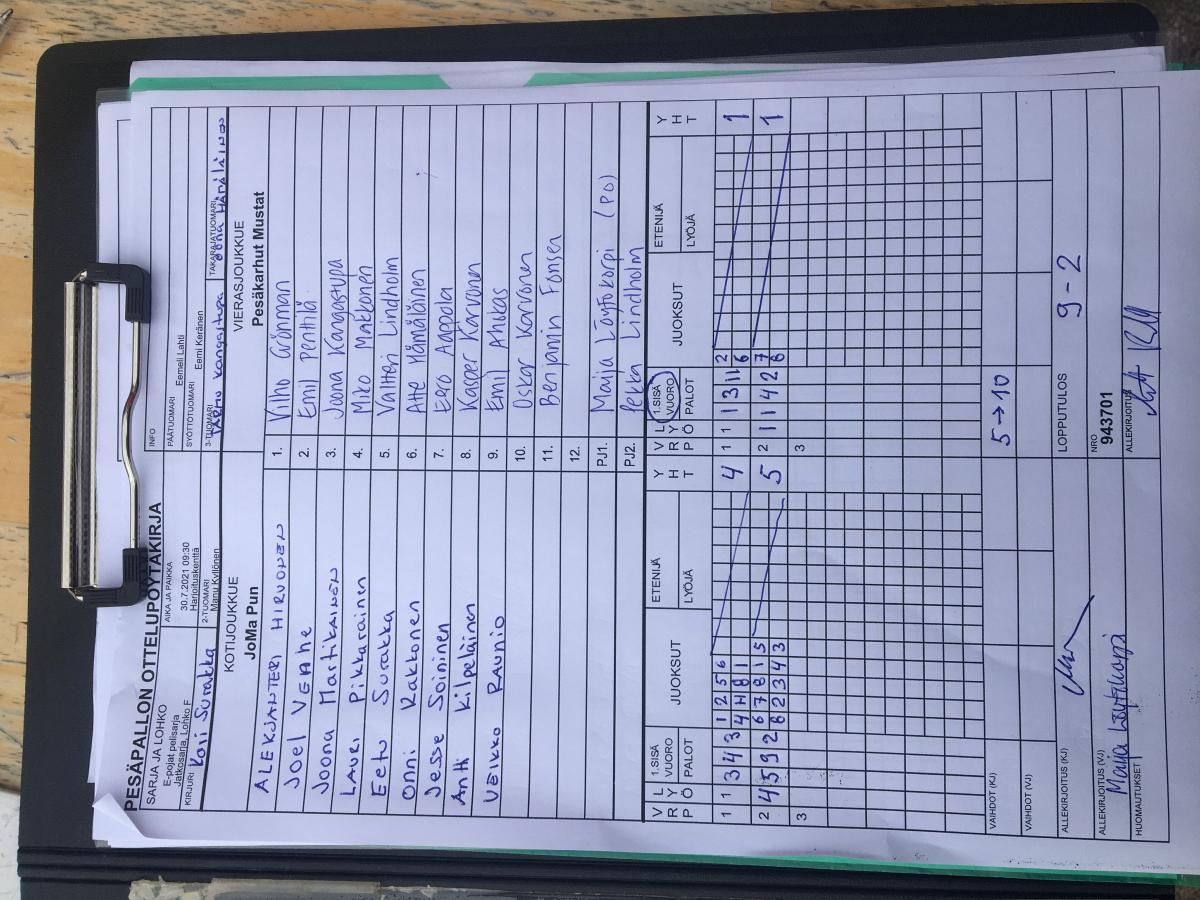 PESÄPALLON OTTELUPÖYTÄKIRJA
SARJA JA LOHKO
E-pojat pelisarja
Jatkosarja, Lohko F
AIKA JA PAIKKA
30.7.2021 09:30
Harjoituskenttä
INFO
PÄÄTUOMARI Eemeli Lahti
SYÖTTÖTUOMARI Eemi Keränen
KIRJURI Kari Surakka
2-TUOMARI
Manu Kyllönen
3-TUOMARI
Kangastupa
TAKARAJATUOMARI
KOTIJOUKKUE
JoMa Pun
VIERASJOUKKUE
Pesäkarhut Mustat
ALEKSANTERI HIRVONEN 1. Vilho Grönman
JOEL VEAHE 2. Emil Penttilä
Joona Martikainen 3. Joona Kangastupa
LAURI Pikkarainen 4. Miko Makkonen
Eetu Surakka 5. Valtteri Lindholm
Onni Kakkonen 6. Atte Hämäläinen
Jesse Soininen 7. Eero Aappola
Antti Kilpeläinen 8. Kasper Karvonen
VEIKKO RAUNIO 9. Emil Ahokas
10. Oskar Karvonen
11. Benjamin Fonsen
12.
PJ1. Maija Löytökorpi (PO)
PJ2. Pekka Lindholm
V R P L Y Ö 1.SISÄ VUORO PALOT JUOKSUT ETENIJÄ LYÖJÄ Y H T V R P L Y Ö 1.SISÄ VUORO PALOT JUOKSUT ETENIJÄ LYÖJÄ Y H T
1 1 3 4 3 1 2 5 6 4 1 1 1 3 11 2 1
4 H 8 1 6
2 4 5 9 2 6 7 8 1 5 5 2 1 1 4 2 7 1
8 2 3 4 3 8
3 3
VAIHDOT (KJ) 5→10
VAIHDOT (VJ)
ALLEKIRJOITUS (KJ) LOPPUTULOS 9-2
ALLEKIRJOITUS (VJ) Maija Löytökorpi NRO 943701
HUOMAUTUKSET ALLEKIRJOITUS